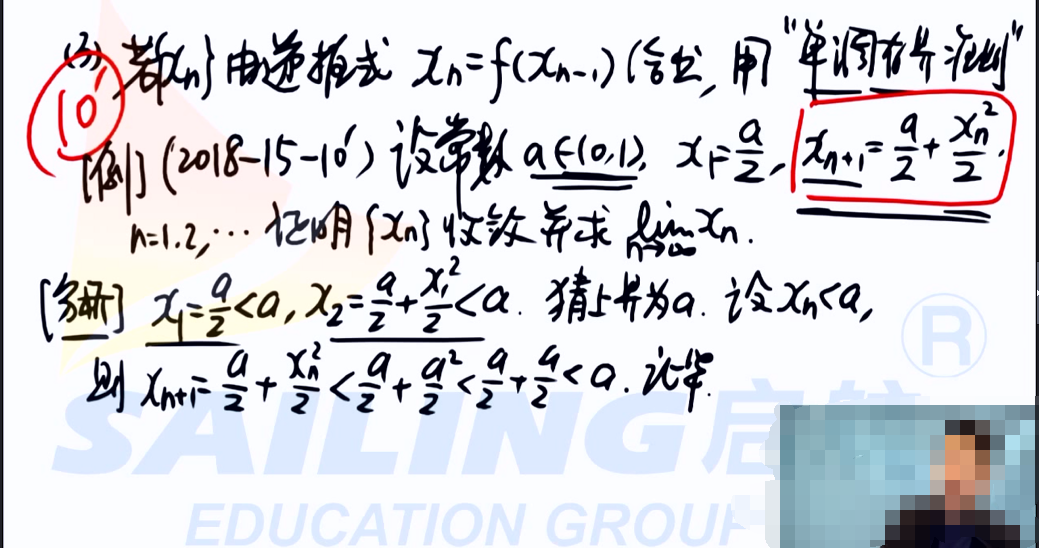 (3) 若{xn}由递推式 xn=f(xn-1)给出, 用"单调有界准则"
10'
[例] (2018-15-10') 设常数 a∈(0,1), x1=a/2, xn+1=a/2+xn²/2,
n=1.2,… 证明{xn}收敛并求 lim n→∞ xn.
[分析] x1=a/2<a, x2=a/2+x1²/2<a. 猜上界为a. 设xn<a,
则 xn+1=a/2+xn²/2<a/2+a²/2<a/2+a/2<a. 证毕.
®
SAILING启航
EDUCATION GROUP